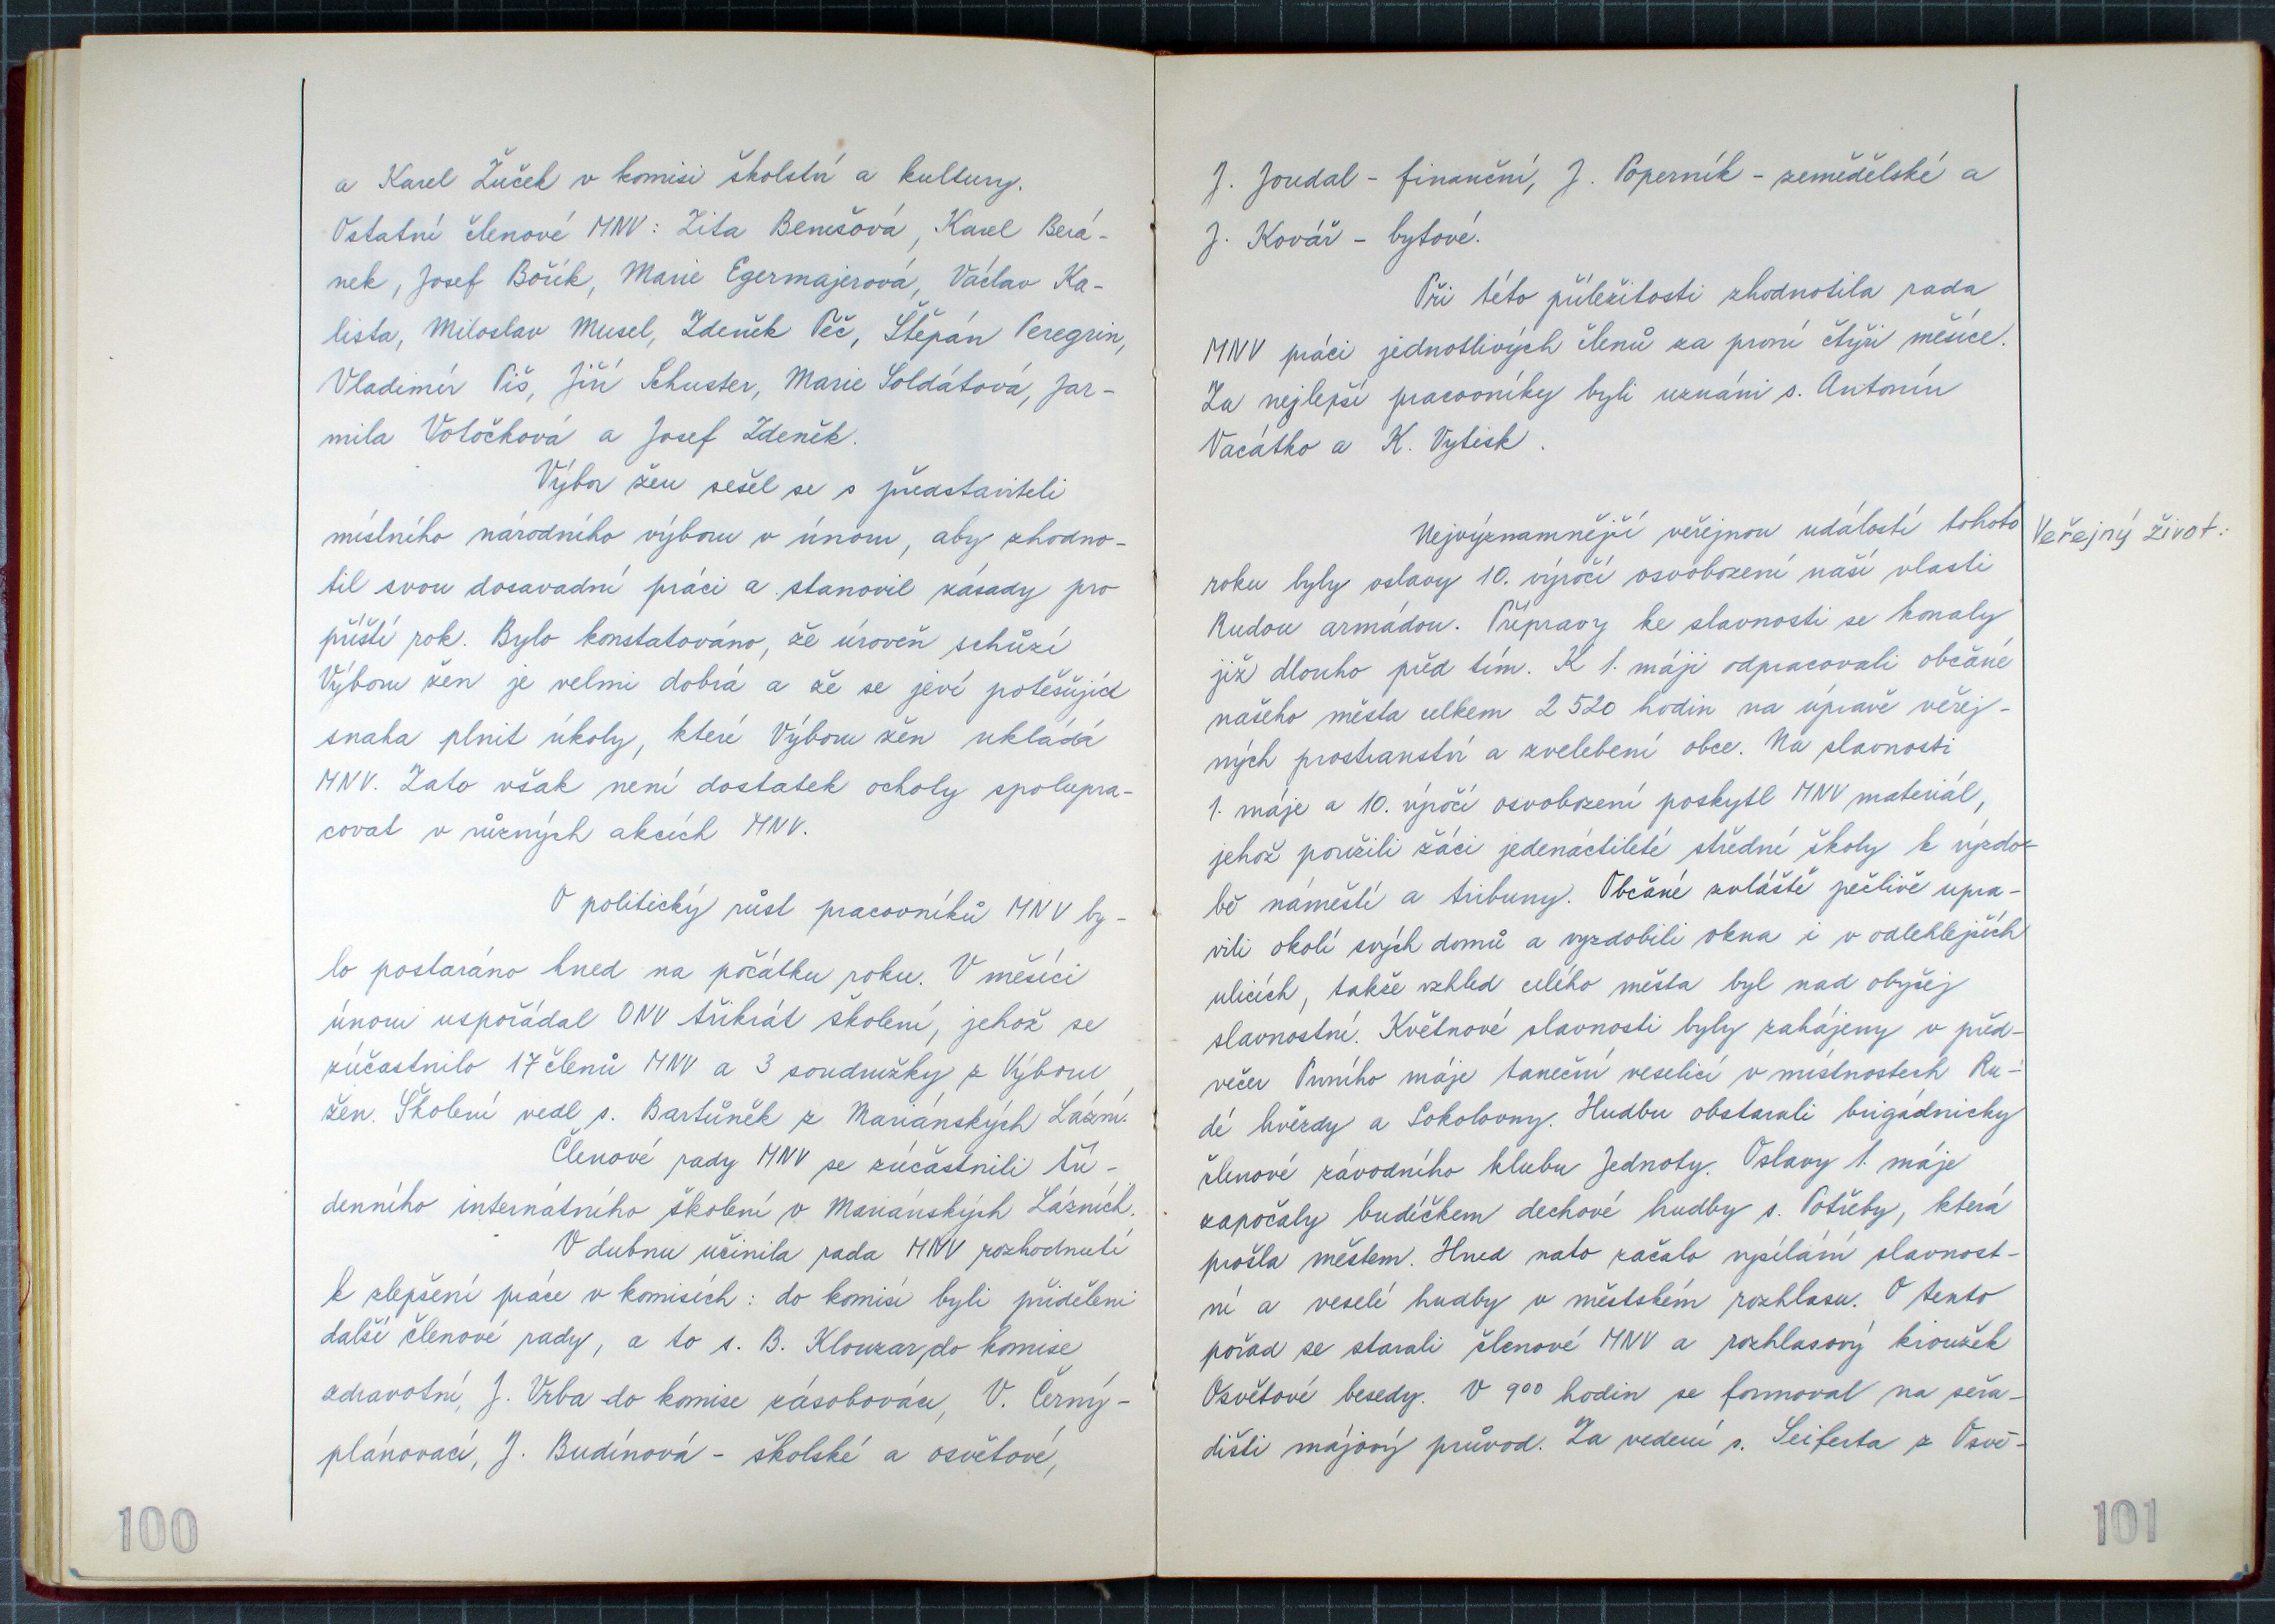 a Karel Žuček v komisi školství a kultury.
Ostatní členové MNV: Zita Benešová, Karel Berá-
nek, Josef Bořík, Marie Egermajerová, Václav Ka-
lista, Miloslav Musel, Zdeněk Péč, Štěpán Peregrin,
Vladimír Piš, Jiří Schuster, Marie Soldátová, Jar-
mila Votočková a Josef Zdeněk.
Výbor žen sešel se s představiteli
místního národního výboru v únoru, aby zhodno-
til svou dosavadní práci a stanovil zásady pro
příští rok. Bylo konstatováno, že úroveň schůzí
Výboru žen je velmi dobrá a že se jeví potěšující
snaha plnit úkoly, které Výboru žen ukládá
MNV. Zato však není dostatek ochoty spolupra-
covat v různých akcích MNV.
O politický růst pracovníků MNV by-
lo postaráno hned na počátku roku. V měsíci
únoru uspořádal ONV třikrát školení, jehož se
zúčastnilo 17 členů MNV a 3 soudružky z Výboru
žen. Školení vedl s. Bartůněk z Mariánských Lázní.
Členové rady MNV se zúčastnili tří-
denního internátního školení v Mariánských Lázních.
V dubnu učinila rada MNV rozhodnutí
k zlepšení práce v komisích: do komisí byli přiděleni
další členové rady, a to s. B. Klouzar do komise
zdravotní, J. Vrba do komise zásobovací, V. Černý -
plánovací, J. Budínová - školské a osvětové,
100
J. Joudal - finanční, J. Poperník - zemědělské a
J. Kovář - bytové.
Při této příležitosti zhodnotila rada
MNV práci jednotlivých členů za první čtyři měsíce.
Za nejlepší pracovníky byli uznáni s. Antonín
Vacátko a K. Vytisk.
Veřejný život:
Nejvýznamnější veřejnou událostí tohoto
roku byly oslavy 10. výročí osvobození naší vlasti
Rudou armádou. Přípravy ke slavnosti se konaly
již dlouho před tím. K 1. máji odpracovali občané
našeho města celkem 2 520 hodin na úpravě veřej-
ných prostranství a zvelebení obce. Na slavnosti
1. máje a 10. výročí osvobození poskytl MNV materiál,
jehož použili žáci jedenáctileté střední školy k výzdo-
bě náměstí a tribuny. Občané zvláště pečlivě upra-
vili okolí svých domů a vyzdobili okna i v odlehlejších
ulicích, takže vzhled celého města byl nad obyčej
slavnostní. Květnové slavnosti byly zahájeny v před-
večer Prvního máje taneční veselicí v místnostech Ru-
dé hvězdy a Sokolovny. Hudbu obstarali brigádnicky
členové závodního klubu Jednoty. Oslavy 1. máje
započaly budíčkem dechové hudby s. Potřeby, která
prošla městem. Hned nato začalo vysílání slavnost-
ní a veselé hudby v městském rozhlasu. O tento
pořad se starali členové MNV a rozhlasový kroužek
Osvětové besedy. V 9⁰⁰ hodin se formoval na seřa-
dišti májový průvod. Za vedení s. Seiferta z Osvě-
101